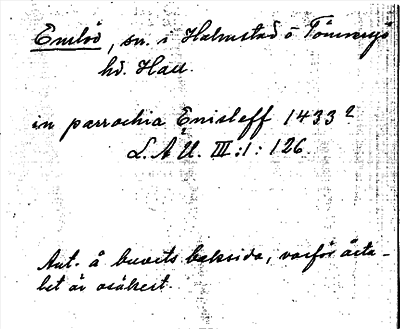 Enslöv, sn. i Halmstad o Tönnersjö
hd. Hall.
in parrochia Enisleff 1433?
L. A Ü. III:1: 126.
Ant. å brevets baksida, varför årta-
let är osäkert.